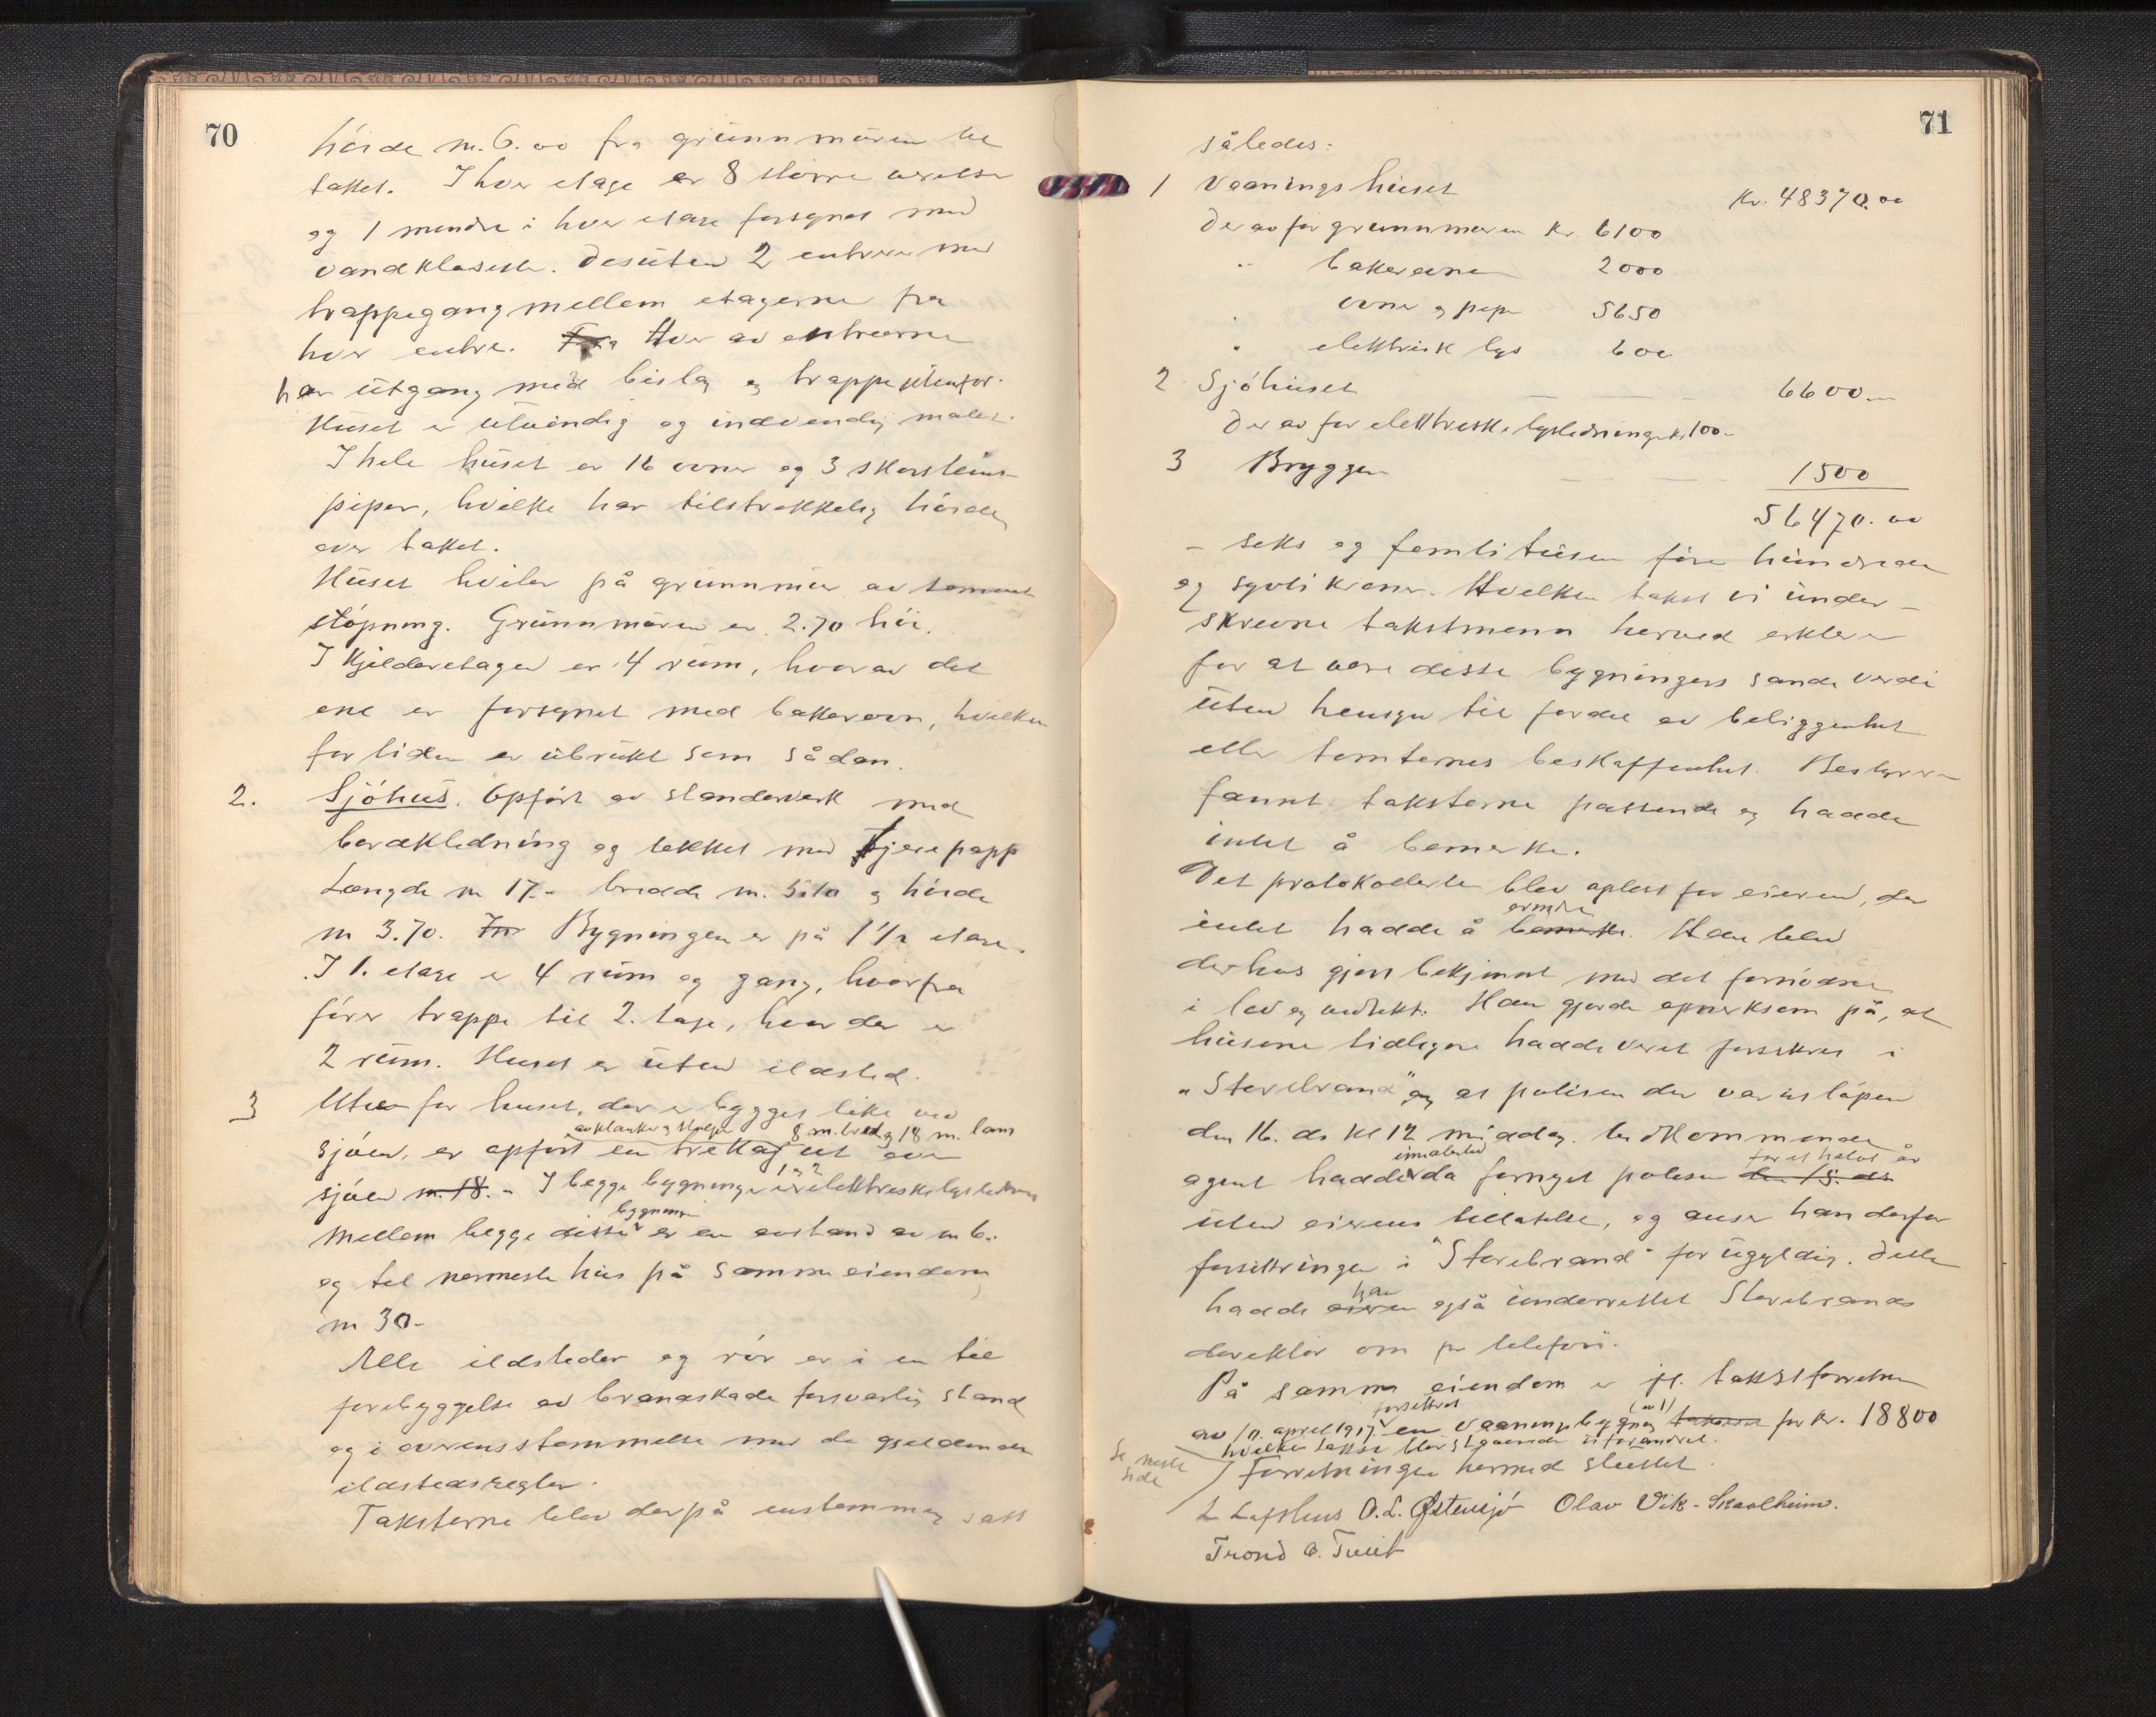 70
höide m. 6.00 fra grunnmuren til
taket. I hver etage er 8 större værelser
og 1 mindre i hver etage forsynet med
vandklosett. Desuten 2 entreer med
trappegang mellem etagerne fra
hver entre. Hver av entreerne
har utgang med bislag og trappe utenfor.
Huset er utvendig og indvendig malet.
I hele huset er 16 ovner og 3 skorsteins-
piper, hvilke har tilstrekkelig höide
over taket.
Huset hviler på grunnmur av sement
stöpning. Grunnmuren er 2.70 höi.
I Kjelderetagen er 4 rum, hvorav det
ene er forsynet med bakerovn, hvilken
for tiden er ubrukt som sådan.
2. Sjöhus. Opfört av standerverk med
bordkledning og tekket med tjærepapp
Længde m 17.- bredde m. 5.10 og höide
m 3.70. Bygningen er på 1 1/2 etage.
I 1. etage er 4 rum og gang, hvorfra
förer trappe til 2. tage, hvor der er
2 rum. Huset er uten ildsted.
3 Uten for huset, der er bygget like ved
av planker og stolper 8 m. bred og 18 m. lang
sjöen, er opfört en trekaj ut over
sjöen m. 18. - I begge bygninger 1 og 2 er elektriske lysledning
bygninger
Mellem begge disse er en avstand av m 6.
og til nermeste hus på samme eiendom
m 30-
Alle ildsteder og rör er i en til
forebyggelse av brandskade forsvarlig stand
og i overensstemmelse med de gjeldende
ildstedsregler.
Taksterne blev derpå enstemmig satt
71
således:
1 Vaaningshuset Kr. 48370.00
Derav for grunnmuren Kr. 6100
" bakerovnen 2000
" ovne og piper 5650
" elektrisk lys 600
2 Sjöhuset - - 6600.-
Derav for elektriske lysledninger kr 100-
3 Bryggen - - 1500
56470.00
- seks og femti tusen fire hundrede
og sytti kroner. Hvilken takst vi under-
skrevne takstmenn herved erklærer
for at være disse bygningers sande verdi
uten hensyn til fordel av beliggenhet
eller tomternes beskaffenhet. Bestyreren
fannt taksterne passende og hadde
intet å bemerke.
Det protokollerte blev oplest for eieren, der
erindre
intet hadde å bemerke. Han blev
derhos gjort bekjennt med det fornödne
i lov og vedtekt. Han gjorde opmerksom på, at
husene tidligere hadde veret forsikret i
"Storebrand" og at polisen der var utlöpen
den 16. ds kl 12 middag. Vedkommende
imidlertid for et halvt år
agent hadde da fornyet polisen den 15. ds
uten eierens tillatelse, og anser han derfor
forsikringen i "Storebrand" for ugyldig. Dette
han
hadde eieren også underrettet Storebrands
direktör om pr telefon.
På samme eiendom er jfl. takstforretn
forsikret (nr 1)
av 10. april 1917 en vaaningsbygning taksert for kr. 18800
hvilken takst blev stående uforandret.
Se neste
side
Forretningen hermed sluttet.
L Lofthus O. L. Östensjö Olav Vik-Skaalheim.
Trond O. Tveit